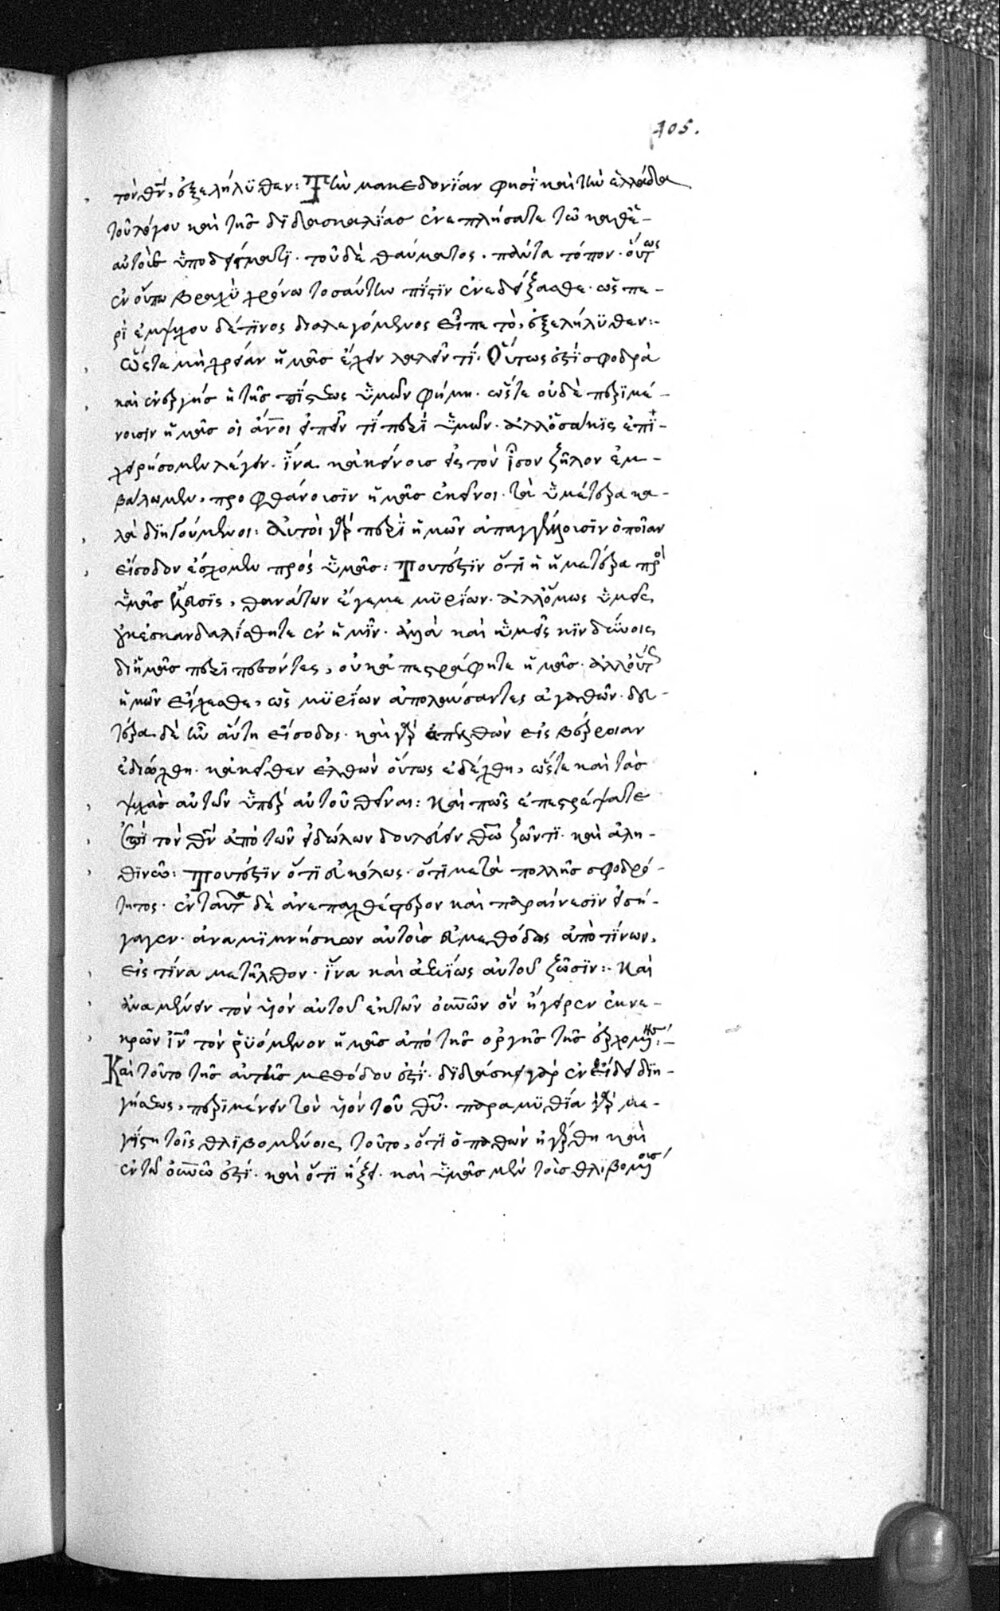 105.
τὸν θν̄, ἐξελήλυθεν: Τὴν μακεδονίαν φησὶ καὶ τὴν ἑλλάδα
τοῦ λόγου καὶ τῆς διδασκαλίας ἐνεπλήσατε τῶ καθ᾽ ἑ-
αυτοὺς ὑποδείγματι. τοῦ δὲ θαύματος. πάντα τόπον. οὕτως
ἐν οὕτω βραχεῖ χρόνω τοσαύτην πίστιν ἐνεδείξασθε. ὡς πε-
ρὶ ἐμψύχου δέ τινος διαλεγόμενος εἶπε τὸ, ἐξελήλυθεν:-
ὥστε μὴ χρείαν ἡμᾶς ἔχειν λαλεῖν τί. Οὕτως ἐστὶ σφοδρὰ
καὶ ἐνεργὴς ἡ τῆς πίστεως ὑμῶν φήμη. ὥστε οὐδὲ περιμέ-
νουσιν ἡμᾶς οἱ ἄνοι εἰπεῖν τί περὶ ὑμῶν. ἀλλ᾽ ὁσάκις ἐπι-
χειρήσομεν λέγειν. ἵνα κἀκείνοις εἰς τὸν ἴσον ζῆλον ἐμ-
βάλωμεν, προφθάνουσιν ἡμᾶς ἐκεῖνοι. τὰ ὑμέτερα κα-
λὰ διηγούμενοι: Αὐτοὶ γὰρ περὶ ἡμῶν ἀπαγγέλλουσιν ὁποίαν
εἴσοδον ἔσχομεν πρὸς ὑμᾶς: Τουτέστιν ὅτι ἡ ἡμετέρα πρὸς
ὑμᾶς εἴσοδος, θανάτων ἔγεμε μυρίων. ἀλλ᾽ ὅμως ὑμεῖς
οὐκ ἐσκανδαλίσθητε ἐν ἡμῖν. ἀλλὰ καὶ ὑμεῖς κινδύνοις
δι᾽ ἡμᾶς περιπεσόντες, οὐκ ἀπεστράφητε ἡμᾶς. ἀλλ᾽ οὕτως
ἡμῶν εἴχεσθε, ὡς μυρίων ἀπολαύσαντες ἀγαθῶν. δευ-
τέρα δὲ ἦν αὕτη εἴσοδος. καὶ γὰρ ἀπελθὼν εἰς βέρροιαν
ἐδιώχθη. κἀκεῖθεν ἐλθὼν οὕτως ἐδέχθη, ὥστε καὶ τὰς
ψυχὰς αὐτῶν ὑπὲρ αὐτοῦ θεῖναι: Καὶ πῶς ἐπεστρέψατε
πρὸς τὸν θν̄ ἀπὸ τῶν εἰδώλων δουλεύειν θῶ ζῶντι. καὶ ἀλη-
θινῶ: Τουτέστιν ὅτι εὐκόλως. ὅτι μετὰ πολλῆς σφοδρό-
τητος. ἐνταῦθα δὲ ἀνεπαχθέστερον καὶ παραίνεσιν εἰσή-
γαγεν. ἀναμιμνήσκων αὐτοὺς ἅμα ἀπὸ τίνων,
εἰς τίνα μετῆλθον. ἵνα καὶ ἀξίως αὐτοῦ ζῶσιν: Καὶ
ἀναμένειν τὸν υἱὸν αὐτοῦ ἐκ τῶν οὐνῶν ὃν ἤγειρεν ἐκ νε-
κρῶν ἰν̄ τὸν ῥυόμενον ἡμᾶς ἀπὸ τῆς ὀργῆς τῆς ἐρχομένης:-
Καὶ τοῦτο τῆς αὐτῆς μεθόδου ἐστί. διδάσκει γὰρ ἐν εἴδει διη-
γήσεως, περιμένειν τὸν υἱὸν τοῦ θῡ. παραμυθία γὰρ με-
γίστη τοῖς θλιβομένοις τοῦτο, ὅτι ὁ παθὼν ἠγέρθη καὶ
ἐν τῶ οὐνῶ ἐστί. καὶ ὅτι ἥξει. καὶ ὑμᾶς μὲν τοὺς θλιβομένους